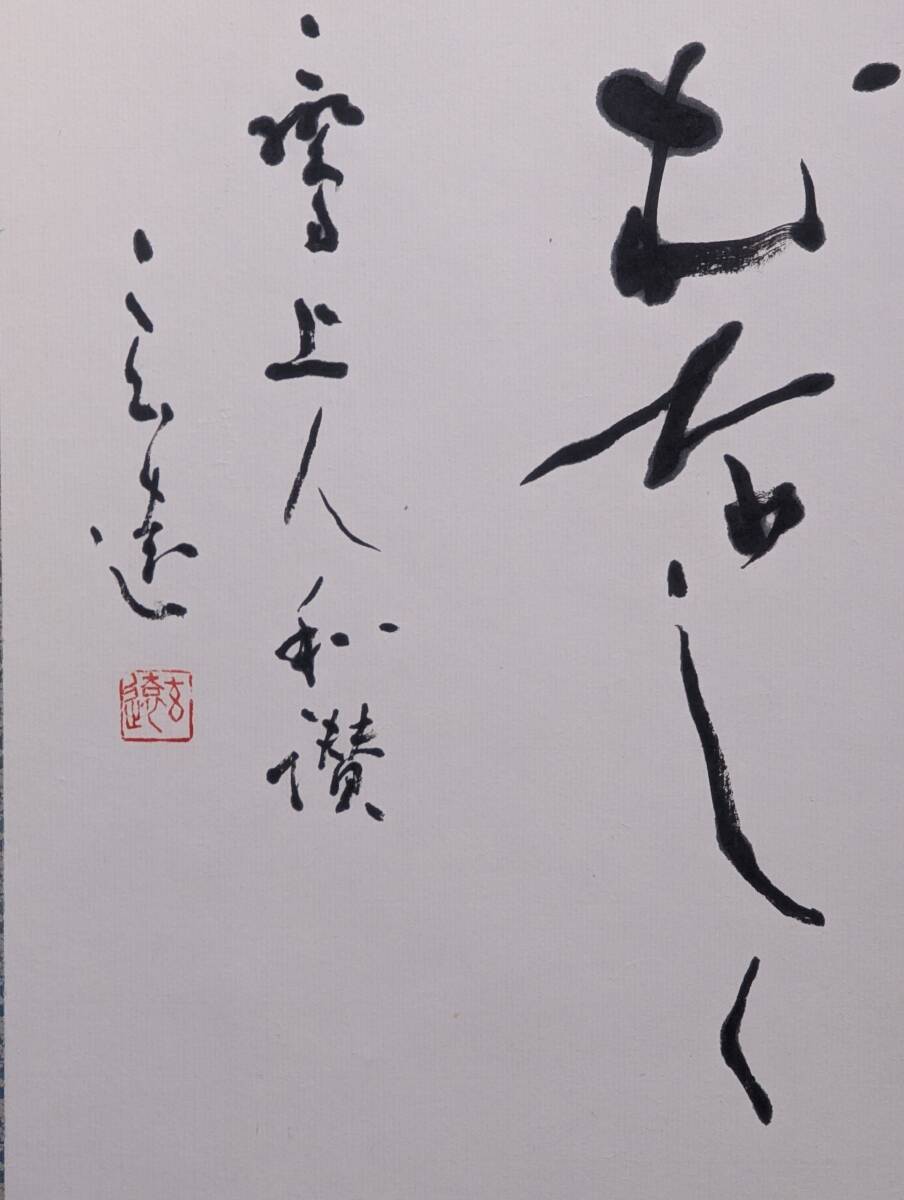 むなしく
鸞上人和讃
玄遠